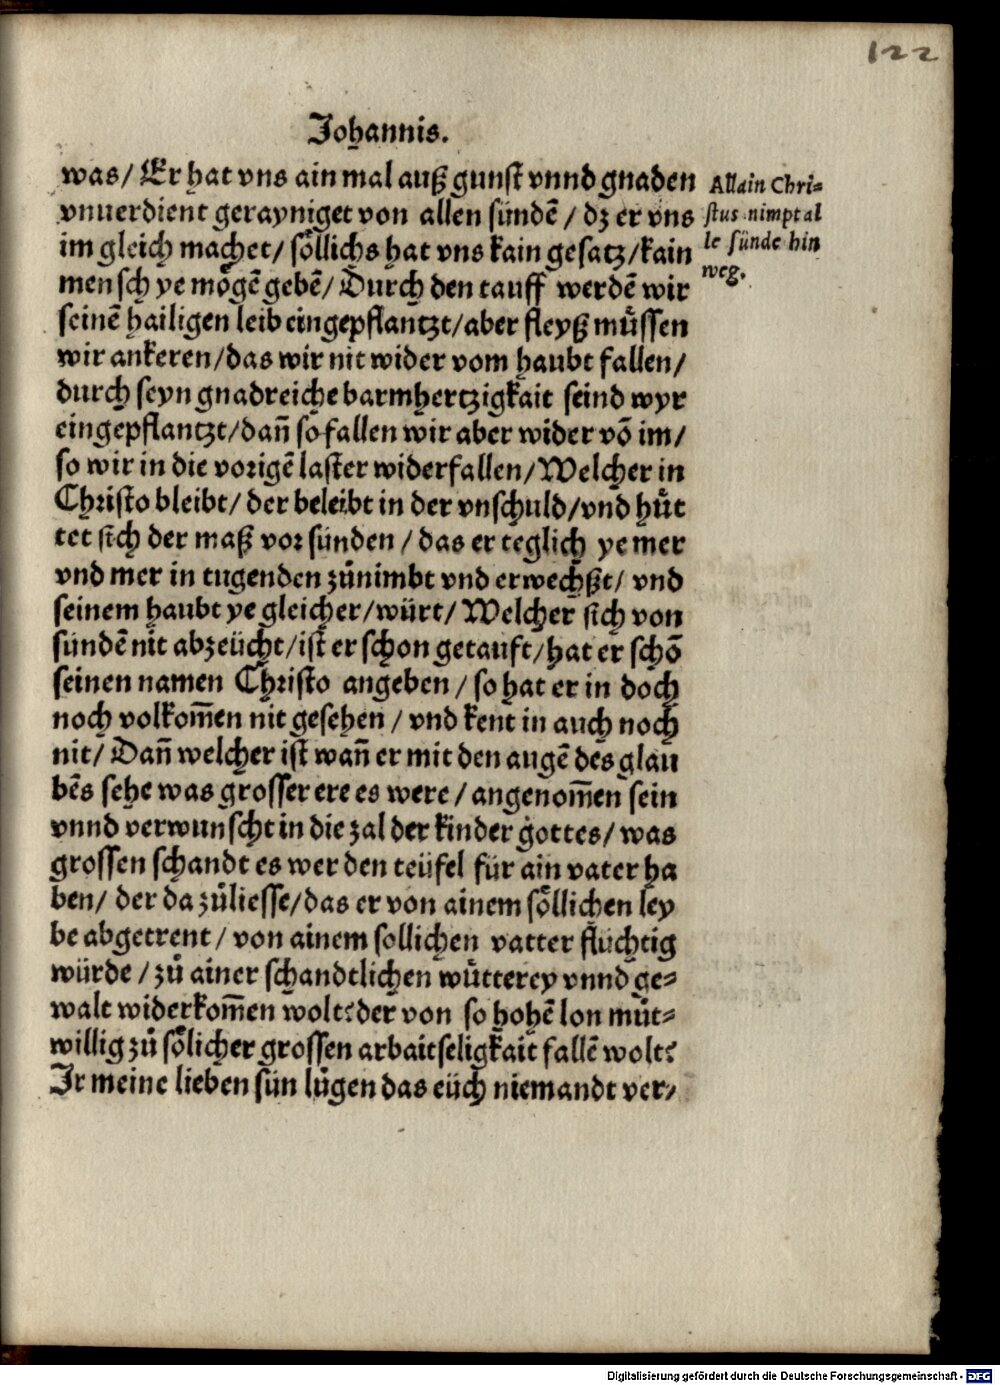 122
Johannis.
was/ Er hat vns ain mal auß gunst vnnd gnaden
vnuerdient gerayniget von allen sündē / dz er vns
im gleich machet/ soͤllichs hat vns kain gesatz/kain
mensch ye moͤgē gebē/ Durch den tauff werdē wir
seinē hailigen leib eingepflantzt/aber fleyß muͤssen
wir ankeren/das wir nit wider vom haubt fallen/
durch seyn gnadreiche barmhertzigkait seind wyr
eingepflantzt/dañ so fallen wir aber wider võ im/
so wir in die vorigē laster widerfallen/Welcher in
Christo bleibt/ der beleibt in der vnschuld/vnd huͤt
tet sich der maß vor sünden / das er teglich ye mer
vnd mer in tugenden zuͤnimbt vnd erwechßt/ vnd
seinem haubt ye gleicher/würt/ Welcher sich von
sündē nit abzeücht/ist er schon getauft/hat er schõ
seinen namen Christo angeben / so hat er in doch
noch volkom̃en nit gesehen / vnd kent in auch noch
nit/ Dañ welcher ist wañ er mit den augē des glau
bēs sehe was grosser ere es were / angenom̃en sein
vnnd verwunscht in die zal der kinder gottes/ was
grossen schandt es wer den teüfel für ain vater ha
ben/ der da zuͤliesse/das er von ainem soͤllichen ley
be abgetrent / von ainem sollichen vatter fluchtig
würde / zuͤ ainer schandtlichen wuͤtterey vnnd ge⸗
walt widerkom̃en wolt?der von so hohē lon muͤt⸗
willig zuͤ soͤlicher grossen arbaitseligkait fallē wolt?
Ir meine lieben sün luͤgen das eüch niemandt ver⸗
Allain Chri⸗
stus nimpt al
le sünde hin
weg.
Digitalisierung gefördert durch die Deutsche Forschungsgemeinschaft - DFG